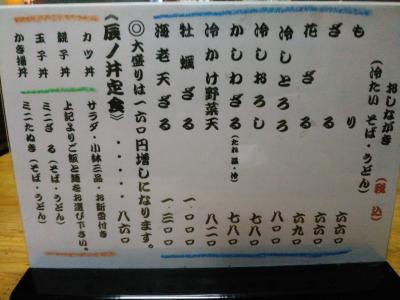 おしながき
（冷たい そば・うどん）（税込）
もり 六六〇
ざる 六六〇
花ざる 六九〇
冷しとろろ 八一〇
冷しおろし 七八〇
かしわざる 七八〇
冷かけ野菜天 八二〇
牡蠣ざる 一、一〇〇
海老天ざる 一、三〇〇
◎大盛りは一六〇円増しになります。
《辰ノ井定食》・・・・・八六〇
カツ丼
親子丼
玉子丼
かき揚丼
サラダ・小鉢三品・お新香付き
上記よりご飯と麺をお選び下さい。
ミニざる（そば・うどん）
ミニたぬき（そば・うどん）